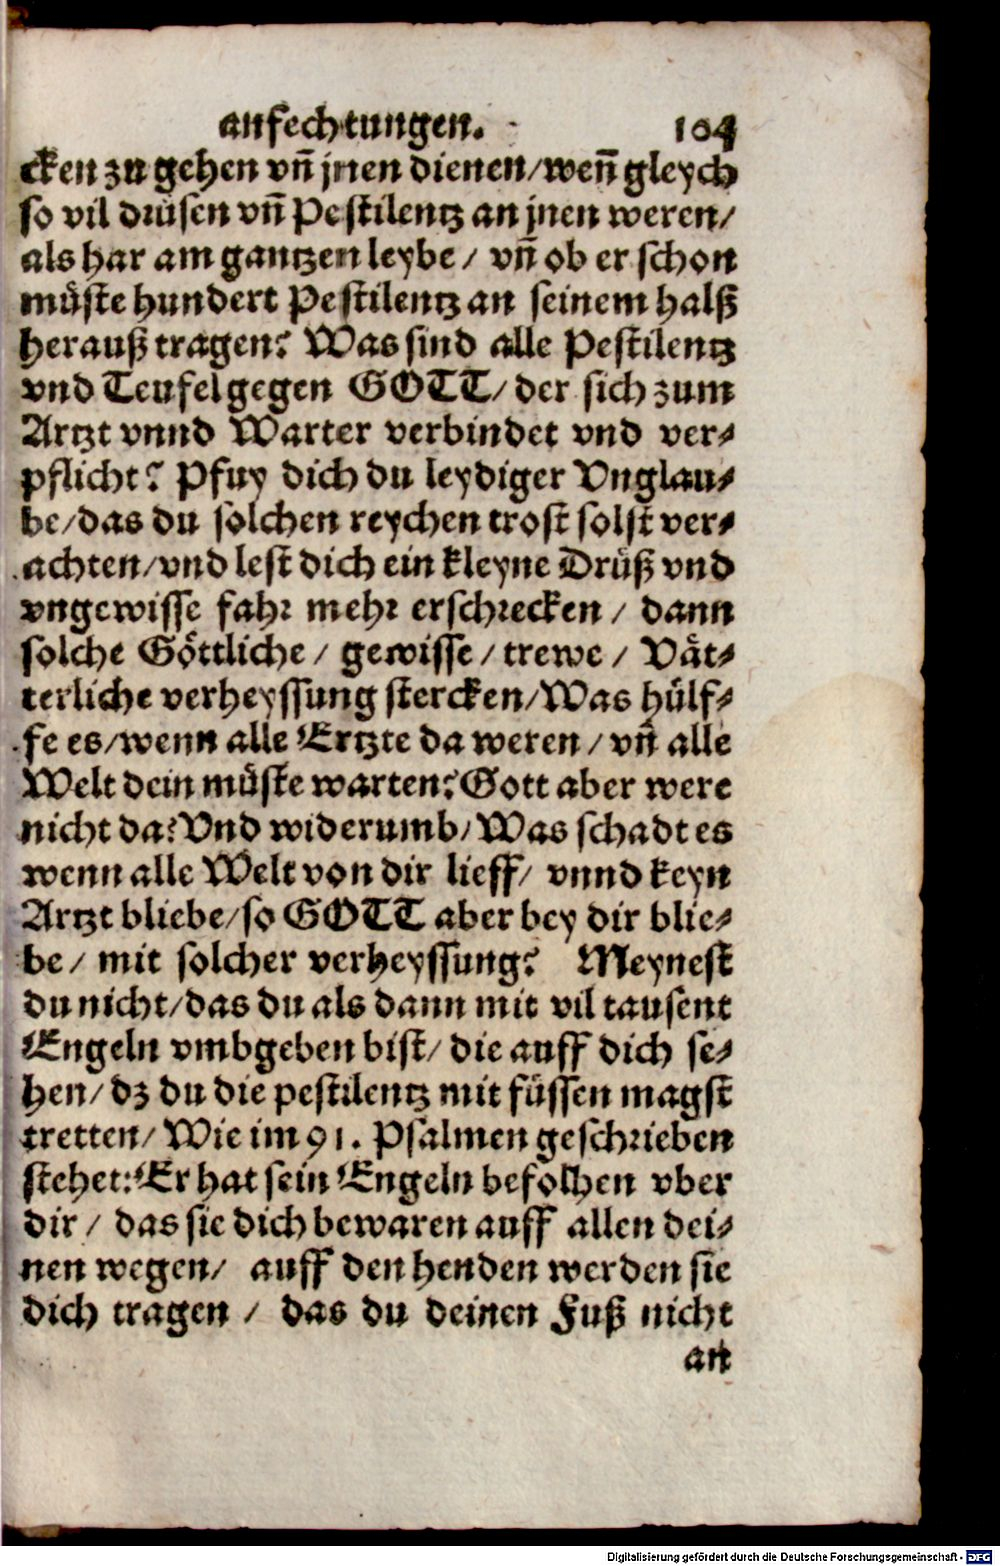 anfechtungen. 104
cken zu gehen vñ jnen dienen/weñ gleych
so vil drüsen vñ Pestilentz an jnen weren/
als har am gantzen leybe / vñ ob er schon
müste hundert Pestilentz an seinem halß
herauß tragen? Was sind alle Pestilentz
vnd Teufel gegen GOTT/ der sich zum
Artzt vnnd Warter verbindet vnd ver⸗
pflicht? Pfuy dich du leydiger Vnglau⸗
be/das du solchen reychen trost solst ver⸗
achten/vnd lest dich ein kleyne Drüß vnd
vngewisse fahr mehr erschrecken / dann
solche Göttliche / gewisse / trewe / Vät⸗
terliche verheyssung stercken/Was hülf⸗
fe es/wenn alle Ertzte da weren / vñ alle
Welt dein müste warten? Gott aber were
nicht da? Vnd widerumb/Was schadt es
wenn alle Welt von dir lieff/ vnnd keyn
Artzt bliebe/so GOTT aber bey dir blie⸗
be/ mit solcher verheyssung? Meynest
du nicht/das du als dann mit vil tausent
Engeln vmbgeben bist/ die auff dich se⸗
hen/ dz du die pestilentz mit füssen magst
tretten/ Wie im 91. Psalmen geschrieben
stehet: Er hat sein Engeln befolhen vber
dir / das sie dich bewaren auff allen dei⸗
nen wegen/ auff den henden werden sie
dich tragen / das du deinen Fuß nicht
an
Digitalisierung gefördert durch die Deutsche Forschungsgemeinschaft - DFG